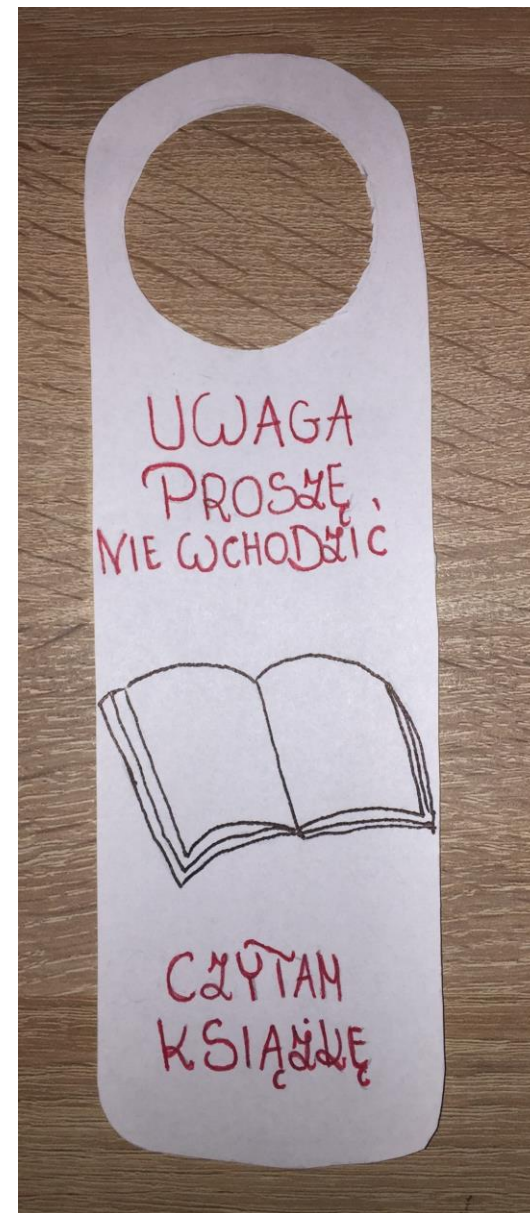 UWAGA
PROSZĘ
NIE WCHODZIĆ
CZYTAM
KSIĄŻKĘ